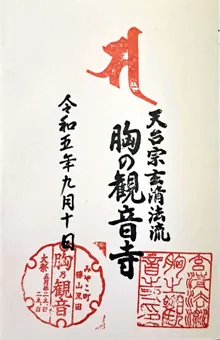 天台宗玄清法流
胸の観音寺
令和五年九月十日
みやこ町
勝山黒田
胸乃観音
大祭